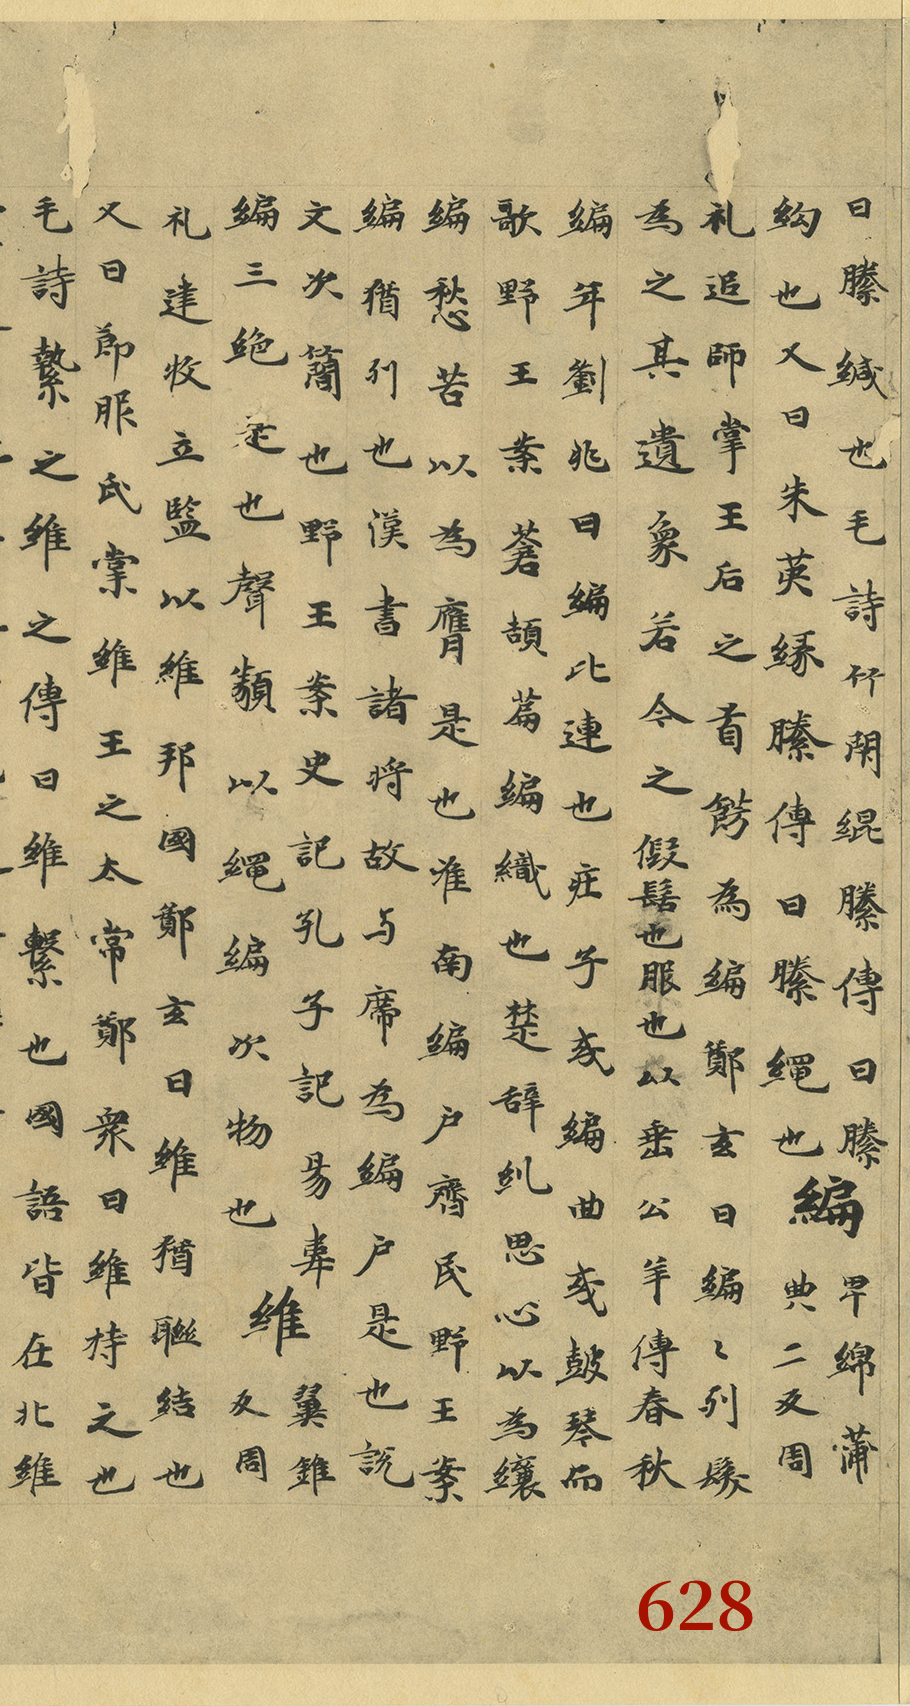 曰縢緘也毛詩竹閇緄縢傳曰縢
約也又曰朱英緑縢傳曰縢繩也
編
卑綿蒲
典二反周
礼追師掌王后之首餝為編鄭玄曰編〻列髮
為之其遺象若今之假髻也服也以垂公羊傳春秋
編年劉兆曰編比連也庄子或編曲或皷琴而
歌野王案蒼頡篇編織也楚辞糺思心以為纕
編愁苦以為膺是也淮南編戸齊民野王案
編猶列也漢書諸将故与席為編戸是也説
文次簡也野王案史記孔子記易韋
編三絶是也聲類以繩編次物也
維
翼錐
反周
礼建牧立監以維邦國鄭玄曰維猶聮結也
又曰節服氏掌維王之太常鄭衆曰維持之也
毛詩縶之維之傳曰維繋也國語皆在北維
628